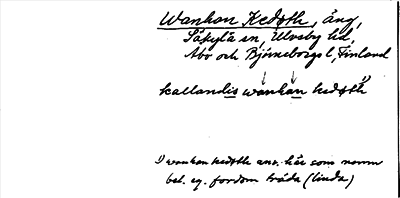 Wankan Kedoth, äng,
Säkylä sn, Ulvsby hd,
Åbo och Björneborgs l, Finland
kallandis wankan kedoth
I wankan kedoth anv. här som namn
bet. eg. fordom träda (linda)